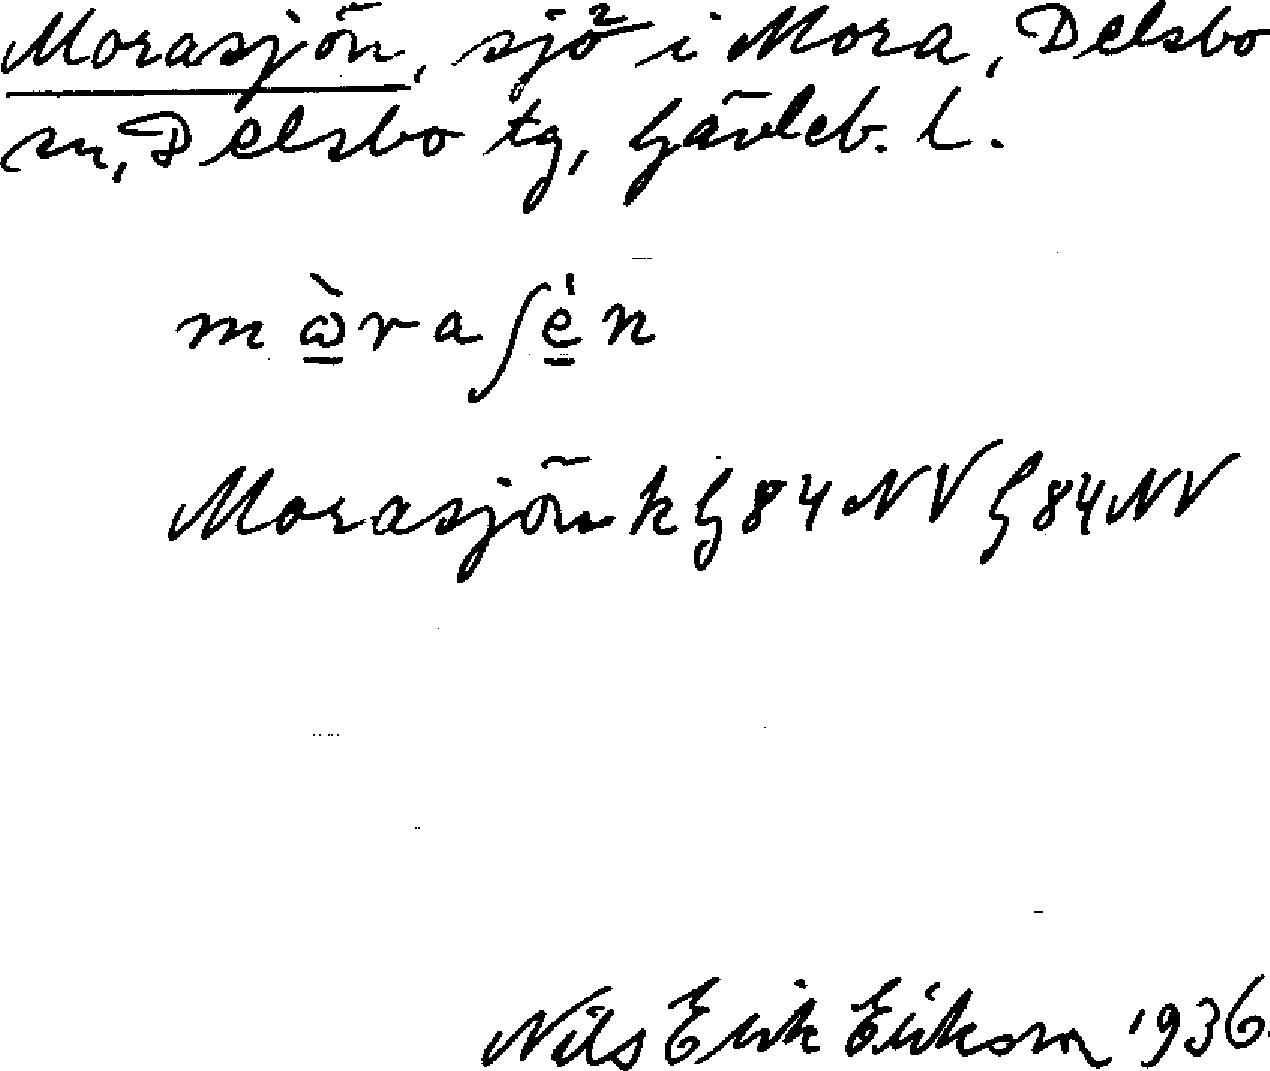 Morasjön, sjö² i Mora, Delsbo
sn, Delsbo tg, Gävleb. l.
mὼ̱raʃe̱̍n
Morasjön k G 84 NV G 84 NV
Nils Erik Erikson 1936.